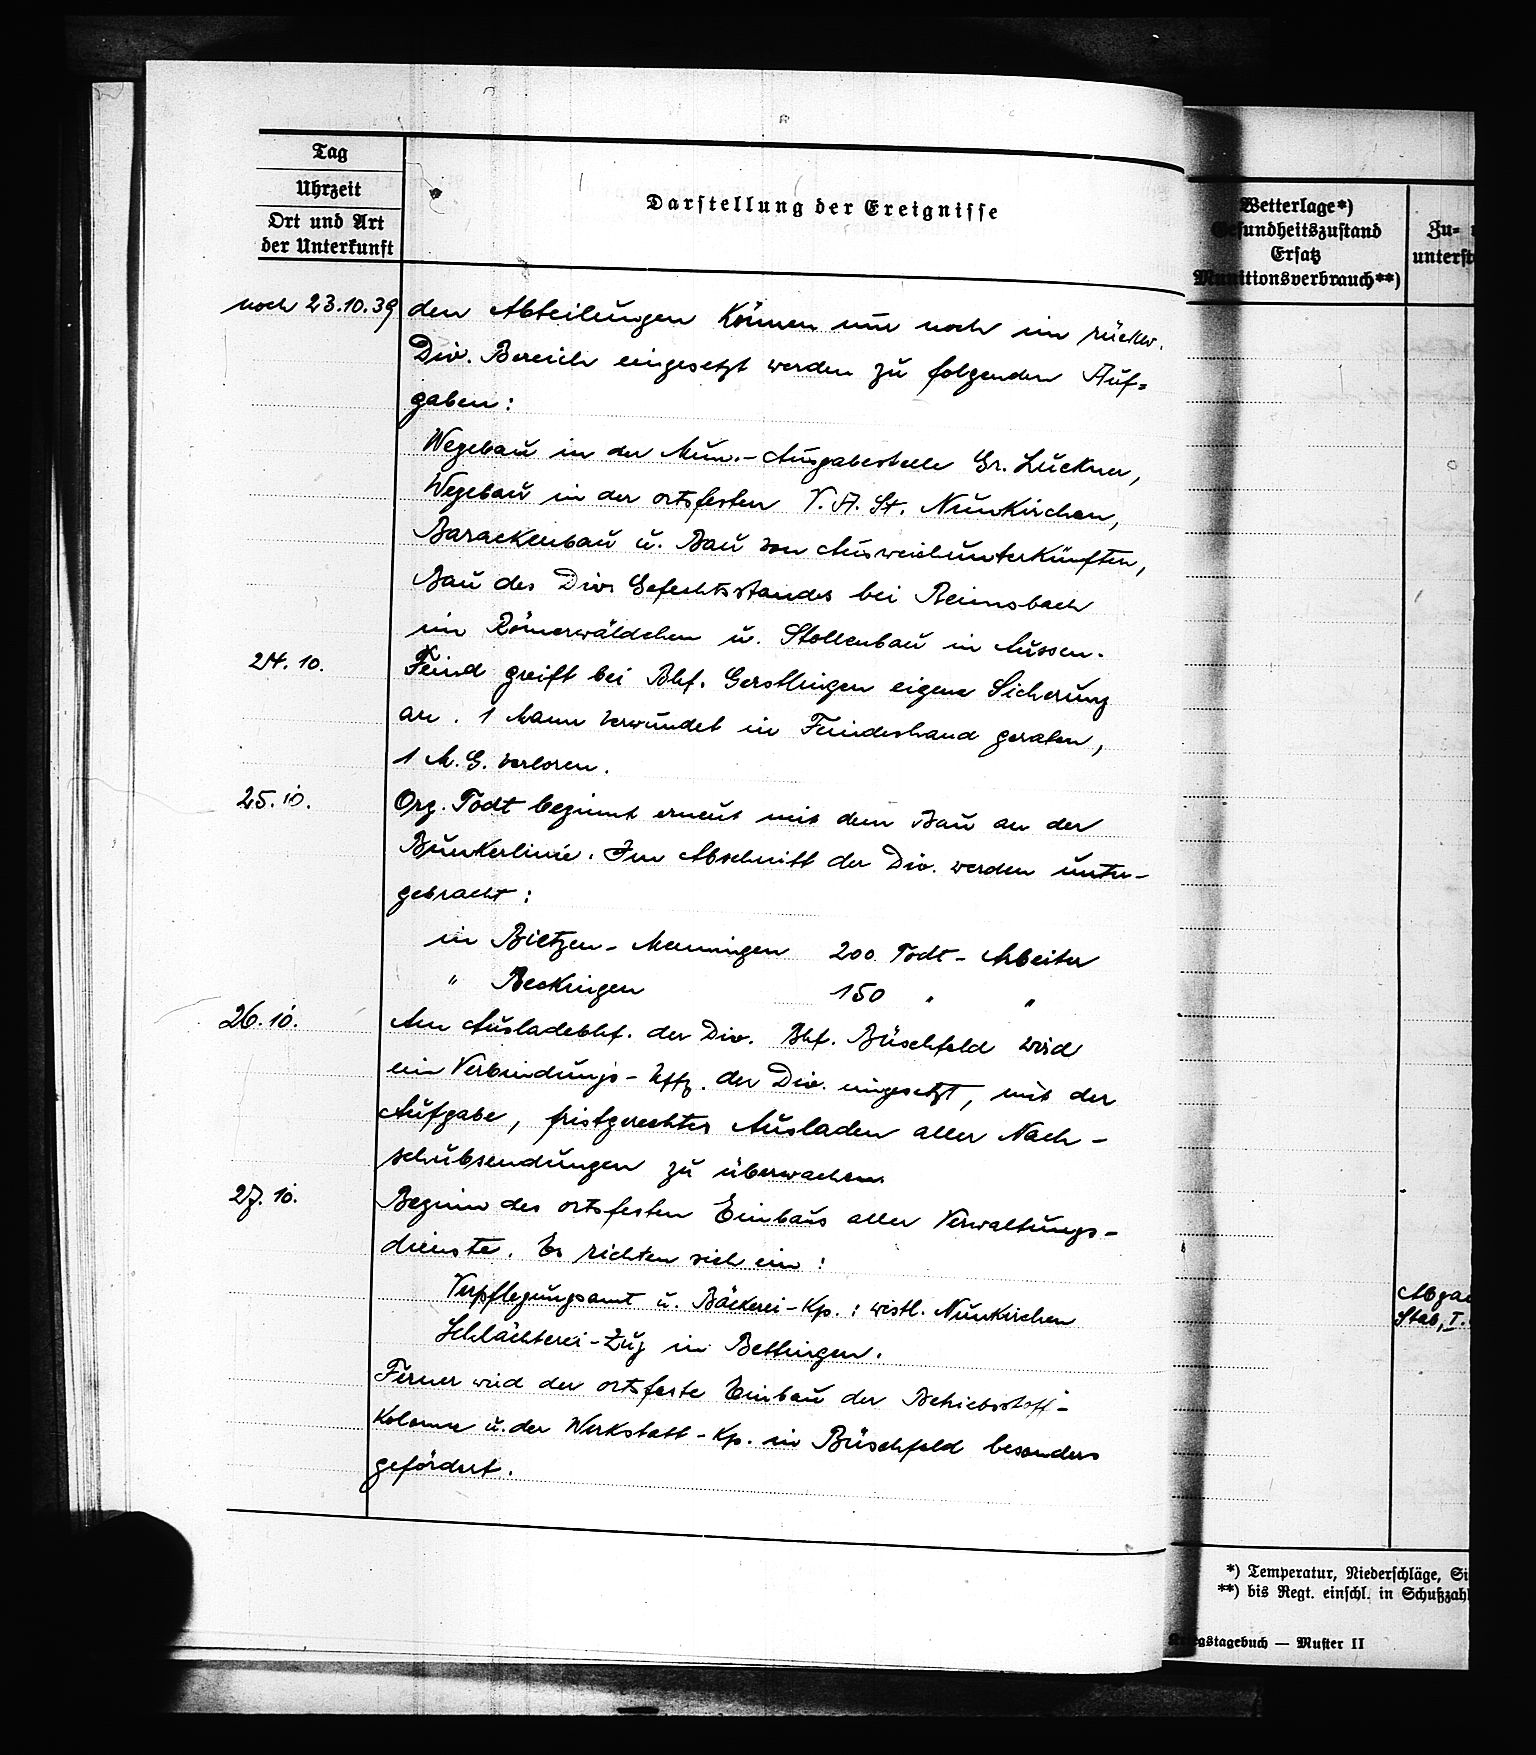 Tag
Uhrzeit
Ort und Art
der Unterkunft
Darstellung der Ereignisse
noch 23.10.39
den Abteilungen können nur noch im rückw.
Div. Bereich eingesetzt werden zu folgenden Auf=
gaben:
Wegebau in der Mun.-Ausgabestelle Gr. Luckner,
Wegebau in der ortsfesten V.A.St. Nunkirchen,
Barackenbau u. Bau von Ausweichunterkünften,
Bau des Div. Gefechtsstandes bei Reimsbach
im Römerwäldchen u. Stollenbau in Aussen.
24.10.
Feind greift bei Bhf. Gerstlingen eigene Sicherung
an. 1 Mann verwundet in Feindeshand geraten,
1 M.G. verloren.
25.10.
Org. Todt beginnt erneut mit dem Bau an der
Bunkerlinie. Im Abschnitt der Div. werden unter-
gebracht:
in Bietzen-Menningen 200 Todt-Arbeiter
" Beckingen 150 " "
26.10.
Am Ausladebhf. der Div. Bhf. Büschfeld wird
ein Verbindungs-Uffz. der Div. eingesetzt, mit der
Aufgabe, fristgerechtes Ausladen aller Nach-
schubsendungen zu überwachen.
27.10.
Beginn des ortsfesten Einbaus aller Verwaltungs-
dienste. Es richten sich ein:
Verpflegungsamt u. Bäckerei-Kp.: westl. Nunkirchen
Schlächterei-Zug in Bettingen.
Ferner wird der ortsfeste Einbau der Betriebsstoff-
Kolonne u. der Werkstatt-Kp. in Büschfeld besonders
gefördert.
Wetterlage*)
Gesundheitszustand
Ersatz
Munitionsverbrauch**)
Zu-
unterst
Stab, I.
*) Temperatur, Niederschläge, Si
**) bis Regt. einschl. in Schußzahl
Kriegstagebuch — Muster II